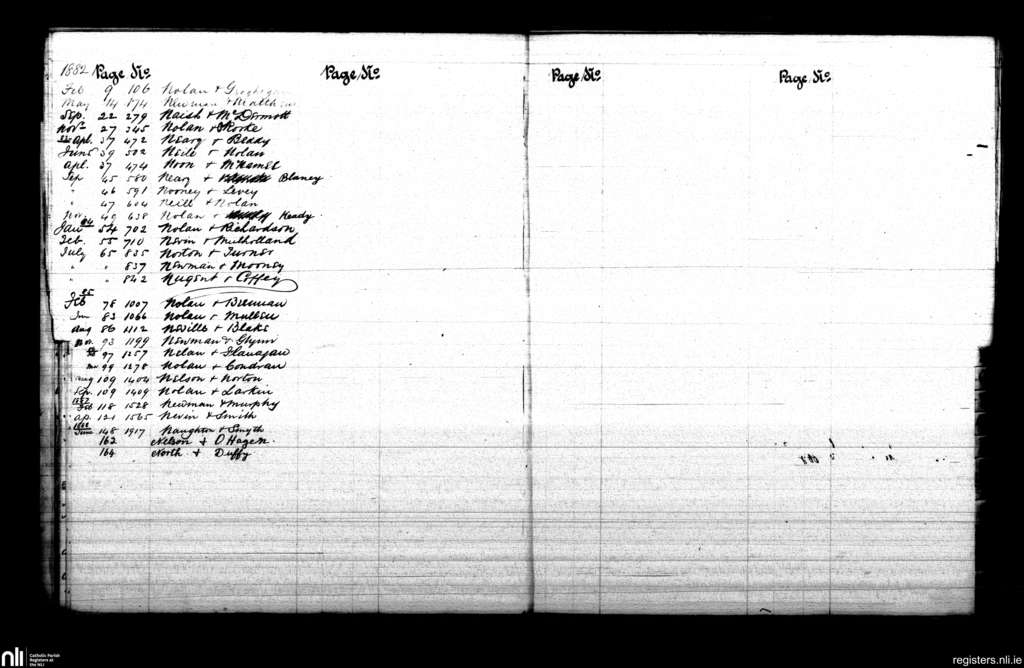 1882 Page No. Page No. Page No. Page No.
Feb 9 106 Nolan & Geoghegan
May 14 174 Newman & Matthews
Sep. 22 279 Naish & McDermott
Novr 27 345 Nolan & Rorke
Apl. 37 472 Neary & Beddy
June 39 502 Neile & Nolan
Apl. 37 474 Noon &
Sep 45 580 Neary & Blaney
" 46 591 Nooney & Levey
" 47 604 Neill & Nolan
Nov. 49 638 Nolan & Keady
84
Jan 54 702 Nolan & Richardson
Feb. 55 710 Nevin & Mulholland
July 65 835 Norton & Turner
" " 837 Newman & Mooney
" " 842 Nugent & Coffey
85
Feb 78 1007 Nolan & Brennan
Jun 83 1066 Nolan & Mullen
Aug 86 1112 Neville & Blake
Nov. 93 1199 Newman & Glynn
97 1257 Nolan & Flanagan
Mar 99 1278 Nolan & Condran
Aug 109 1404 Nelson & Norton
Sep. 109 1409 Nolan & Larkin
1887
Feb 118 1528 Newman & Murphy
Ap. 121 1565 Nevin & Smith
1888
June 148 1917 Naughton & Smyth
162 Nelson & O'Hagen.
164 North & Duffy
nli Catholic Parish
Registers at
the NLI
registers.nli.ie